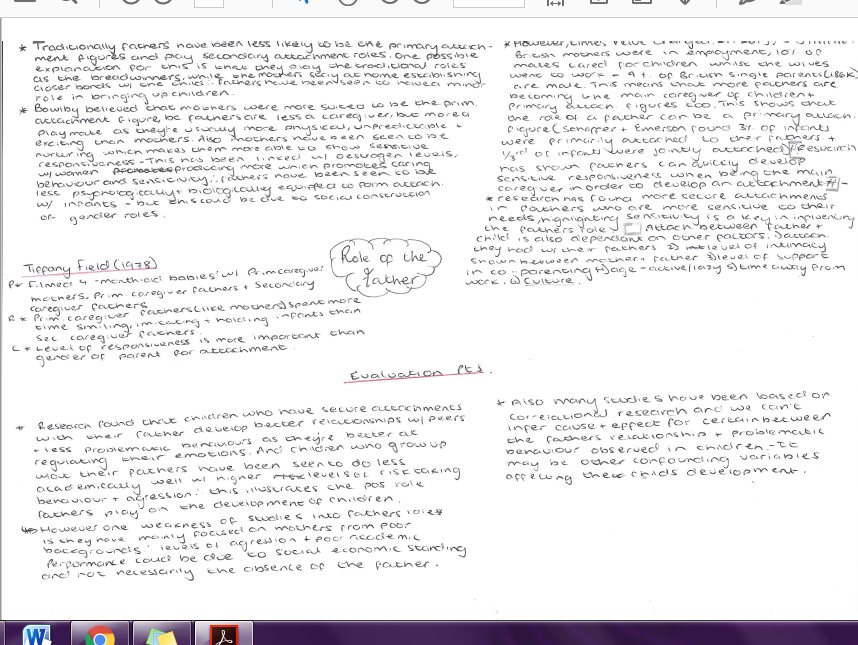 * Traditionally fathers have been less likely to be the primary attach-
ment figures and play secondary attachment roles. One possible
explanation for this is that they play the traditional roles
as the breadwinners, while the mothers stay at home establishing
closer bonds w/ the child. Fathers have been seen to have a minor
role in bringing up children.
* Bowlby believed that mothers were more suited to be the prim.
attachment figure, bc fathers are less a caregiver, but more a
playmate as they're usually more physical, unpredictable +
exciting than mothers. Also mothers have been seen to be
nurturing which makes them more able to show sensitive
responsiveness - This has been linked w/ oestrogen levels,
w/ women promotes producing more which promotes caring
behaviour and sensitivity ∴ fathers have been seen to be
less psychologically + biologically equipped to form attach.
w/ infants - but this could be due to social construction
of gender roles.
Tiffany Field (1978)
P* Filmed 4-month-old babies w/ Prim caregiver
mothers, Prim. caregiver fathers + Secondary
caregiver fathers
R* Prim. caregiver fathers (like mothers) spent more
time smiling, imitating + holding infants than
sec caregiver fathers.
C* Level of responsiveness is more important than
gender of parent for attachment.
Role of the
father
* However, times
British mothers were in employment, 10% of
males cared for children whilst the wives
went to work - 9% of British single parents (186K)
are male. This means that more fathers are
becoming the main caregiver of children +
primary attach. figures too. This shows that
the role of a father can be a primary attach.
figure (Schaffer + Emerson found 3% of infants
were primarily attached to their fathers +
1/3rd of infants were jointly attached) Research
has shown fathers can quickly develop
sensitive responsiveness when being the main
caregiver in order to develop an attachment
* research has found more secure attachments
in fathers who are more sensitive to their
needs, highlighting sensitivity is a key in influencing
the fathers role / Attach between father +
child is also dependant on other factors. 1) attach.
they had w/ their fathers 2) level of intimacy
shown between mother + father 3) level of support
in co-parenting 4) age - active/lazy 5) time away from
work. 6) Culture.
Evaluation Pts.
* Research found that children who have secure attachments
with their father develop better relationships w/ peers
+ less problematic behaviours as they're better at
regulating their emotions. And children who grow up
w/out their fathers have been seen to do less
academically well w/ higher levels of risk taking
behaviour + agression ∴ this illustrates the pos role
fathers play on the development of children.
However one weakness of studies into fathers roles
is they have mainly focused on mothers from poor
backgrounds ∴ levels of agression + poor academic
performance could be due to social economic standing
and not necessarily the absence of the father.
* Also many studies have been based on
correlational research and we can't
infer cause + effect for certain between
the fathers relationship + problematic
behaviour observed in children. It
may be other confounding variables
affecting the childs development.